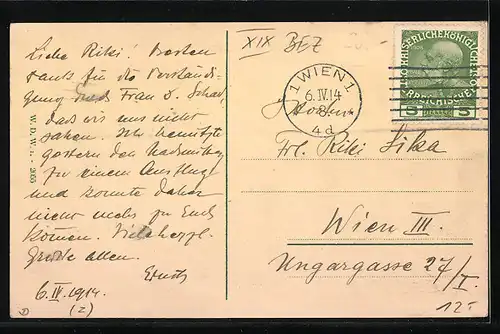 Liebe Riki! Besten
Dank für die Verständi-
gung und Frau S. Schad,
daß wir uns nicht
sahen. Ich benützte
gestern den Nachmittag
zu einem Ausflug
und konnte daher
nicht mehr zu Euch
kommen. Vieleherzl.
Grüße allen.
Ernst
6.IV.1914.
(2)
W. D. W. u. - 265
XIX BEZ
1 WIEN 1
6.IV.14
4d
1908 KAISERLICHE KÖNIGLICHE ÖSTERREICHISCHE POST
5 5
Frl. Riki Sika
Wien III.
Ungargasse 27/I.
12.-